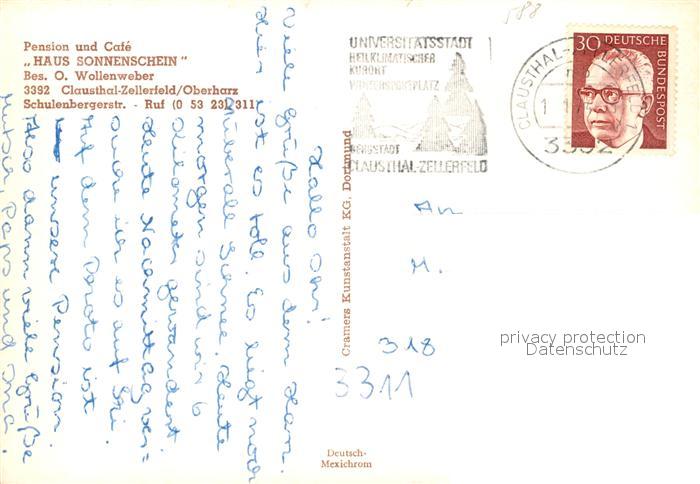 588
Pension und Café
„HAUS SONNENSCHEIN"
Bes. O. Wollenweber
3392 Clausthal-Zellerfeld/Oberharz
Schulenbergerstr. - Ruf (0 53 23) 311
UNIVERSITÄTSSTADT
HEILKLIMATISCHER
KURORT
WINTERSPORTPLATZ
BERGSTADT
CLAUSTHAL-ZELLERFELD
CLAUSTHAL-ZELLERFELD 1
3392
30 DEUTSCHE BUNDESPOST
Hallo Omi!
Viele Grüße aus dem Harz.
Hier ist es toll. Es liegt noch
überall Schnee. Heute
morgen sind wir 6
Kilometer gewandert
Heute Nachmittag ver-
suche ich es auf Ski.
Auf dem Photo ist
unsere Pension.
Also dann viele Grüße
Mutsch, Paps und
Cramers Kunstanstalt KG, Dortmund
An
M.
318
3311
privacy protection
Datenschutz
Deutsch-
Mexichrom